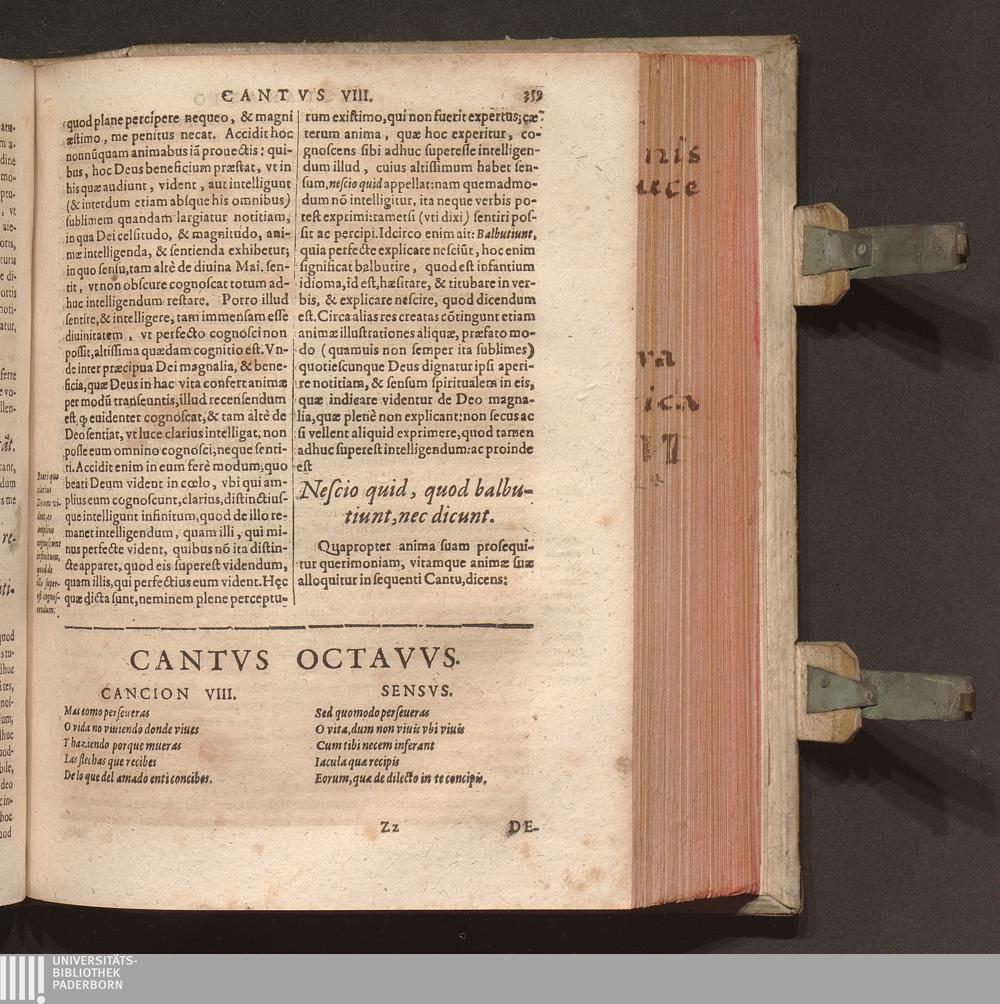 CANTVS VIII.
359
quod plane percipere nequeo, & magni
æstimo, me penitus necat. Accidit hoc
nonnũquam animabus iã prouectis: qui-
bus, hoc Deus beneficium præstat, vt in
his quæ audiunt, vident, aut intelligunt
(& interdum etiam absque his omnibus)
sublimem quandam largiatur notitiam,
in qua Dei celsitudo, & magnitudo, ani-
mæ intelligenda, & sentienda exhibetur;
in quo sensu, tam altè de diuina Mai. sen-
tit, vt non obscure cognoscat totum ad-
huc intelligendum restare. Porro illud
sentire, & intelligere, tam immensam esse
diuinitatem, vt perfecto cognosci non
possit, altissima quædam cognitio est. Vn-
de inter præcipua Dei magnalia, & bene-
ficia, quæ Deus in hac vita confert animæ
per modũ transeuntis, illud recensendum
est, ꝙ euidenter cognoscat, & tam altè de
Deo sentiat, vt luce clarius intelligat, non
posse eum omnino cognosci, neque senti-
ri. Accidit enim in eum ferè modum, quo
beati Deum vident in cœlo, vbi qui am-
plius eum cognoscunt, clarius, distinctius-
que intelligunt infinitum, quod de illo re-
manet intelligendum, quam illi, qui mi-
nus perfecte vident, quibus nõ ita distin-
cte apparet, quod eis superest videndum,
quam illis, qui perfectius eum vident. Hęc
quæ dicta sunt, neminem plene perceptu-
Beati quo
clarius
Deum vi-
dent, eo
amplius
cognoscunt
infinitum,
quod de
illo super-
est cognos-
cendum.
rum existimo, qui non fuerit expertus; cæ-
terum anima, quæ hoc experitur, co-
gnoscens sibi adhuc superesse intelligen-
dum illud, cuius altissimum habet sen-
sum, nescio quid appellat: nam quemadmo-
dum nõ intelligitur, ita neque verbis po-
test exprimi: tametsi (vti dixi) sentiri pos-
sit ac percipi. Idcirco enim ait: Balbutiunt,
quia perfecte explicare nesciũt, hoc enim
significat balbutire, quod est infantium
idioma, id est, hæsitare, & titubare in ver-
bis, & explicare nescire, quod dicendum
est. Circa alias res creatas cõtingunt etiam
animæ illustrationes aliquæ, præfato mo-
do (quamuis non semper ita sublimes)
quotiescunque Deus dignatur ipsi aperi-
re notitiam, & sensum spiritualem in eis,
quæ indicare videntur de Deo magna-
lia, quæ plenè non explicant: non secus ac
si vellent aliquid exprimere, quod tamen
adhuc superest intelligendum: ac proinde
est
Nescio quid, quod balbu-
tiunt, nec dicunt.
Quapropter anima suam prosequi-
tur querimoniam, vitamque animæ suæ
alloquitur in sequenti Cantu, dicens:
CANTVS OCTAVVS.
CANCION VIII.
Mas como perseueras
O vida no viuiendo donde viues
Y haziendo porque mueras
Las flechas que recibes
De lo que del amado en ti concibes.
SENSVS.
Sed quomodo perseueras
O vita, dum non viuis vbi viuis
Cum tibi necem inferant
Iacula quæ recipis
Eorum, quæ de dilecto in te concipis.
Zz
DE-
UNIVERSITÄTS-
BIBLIOTHEK
PADERBORN